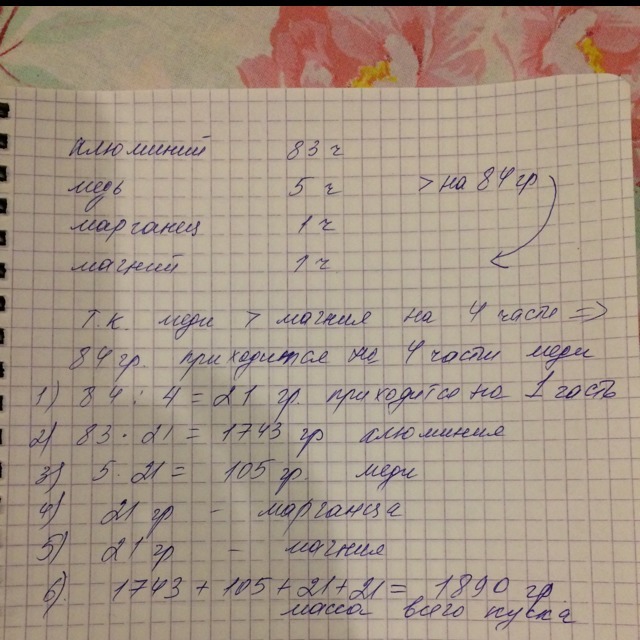 алюминий 83 ч
медь 5 ч > на 84 гр
марганец 1 ч
магний 1 ч
Т.к. меди > магния на 4 части =>
84 гр. приходится на 4 части меди
1) 84 : 4 = 21 гр. приходится на 1 часть
2) 83 · 21 = 1743 гр алюминия
3) 5 · 21 = 105 гр. меди
4) 21 гр - марганца
5) 21 гр - магния
6) 1743 + 105 + 21 + 21 = 1890 гр
масса всего куска